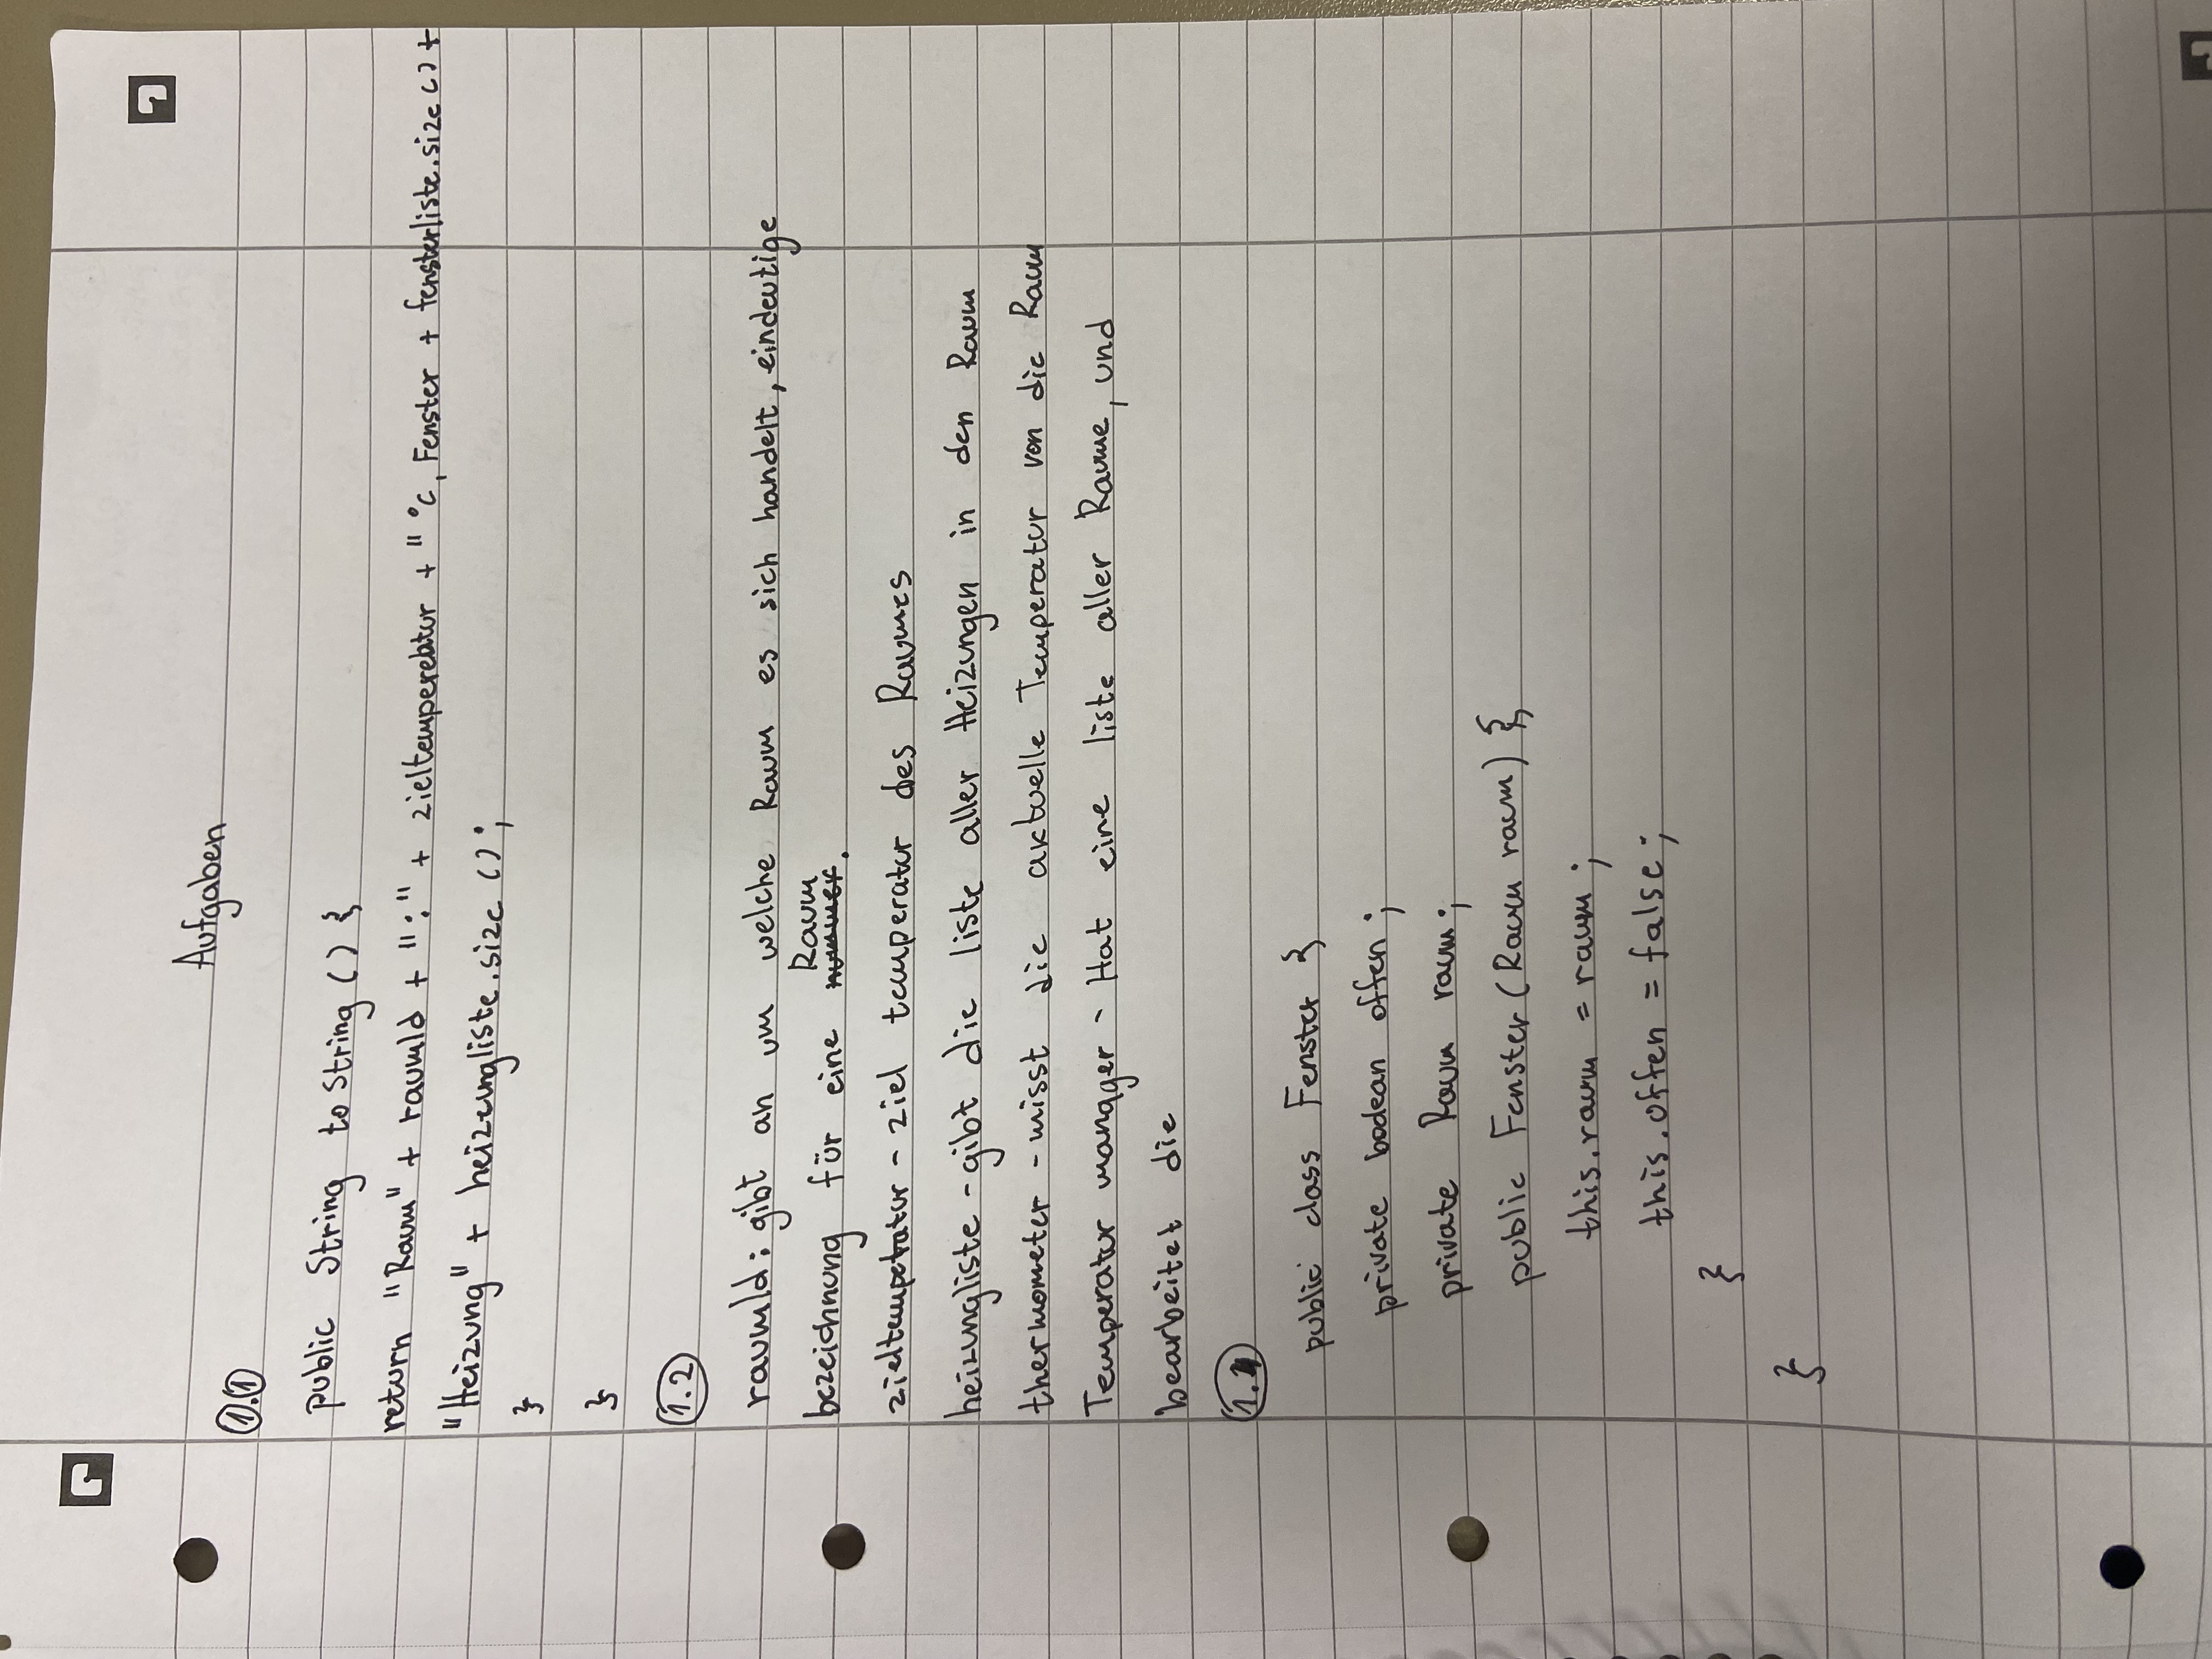 Aufgaben
1.1
public String toString () {
return "Raum" + raumId + ":" + zieltemperebtur + " °C, Fenster + fensterliste.size () +
"Heizung" + heizungliste.size ();
}
}
1.2
raumId: gibt an um welche Raum es sich handelt, eindeutige
bezeichnung für eine Raum.
zieltemperatur - ziel temperatur des Raumes
heizungliste - gibt die liste aller Heizungen in den Raum
thermometer - misst die aktuelle Temperatur von die Raum
Temperatur manager - Hat eine liste aller Raume, und
bearbeitet die
1.1
public class Fenster {
private boolean offen ;
private Raum raum ;
public Fenster (Raum raum) {
this.raum = raum ;
this.offen = false ;
}
}